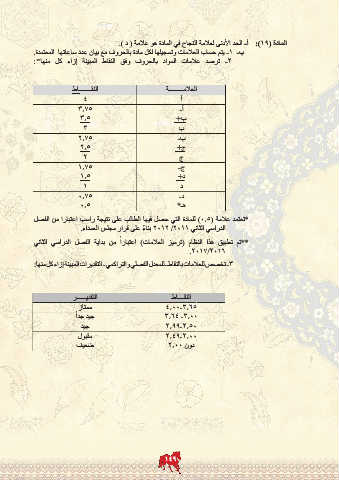 المادة (١٩): أ- الحد الأدنى لعلامة النجاح في المادة هو علامة ( د ).
ب- ١- يتم حساب العلامات وتسجيلها لكل مادة بالحروف مع بيان عدد ساعاتها المعتمدة.
٢- ترصد علامات المواد بالحروف وفق النقاط المبينة إزاء كل منها*:
العلامـــــــة النقـــــــاط
أ ٤
أ- ٣,٧٥
ب+ ٣,٥
ب ٣
ب- ٢,٧٥
ج+ ٢,٥
ج ٢
ج- ١,٧٥
د+ ١,٥
د ١
د- ٠,٧٥
هـ* ٠,٥
*تعتمد علامة (٠,٥) للمادة التي حصل فيها الطالب على نتيجة راسب اعتباراً من الفصل
الدراسي الثاني ٢٠١١/ ٢٠١٢ بناءً على قرار مجلس العمداء.
**تم تطبيق هذا النظام (ترميز العلامات) اعتباراً من بداية الفصل الدراسي الثاني
٢٠١٧/٢٠١٦.
٣- تخصص للعلامات بالنقاط، للمعدل الفصلي والتراكمي، التقديرات المبينة إزاء كل منها:
النقـــاط التقديـــر
٣,٦٥-٤,٠٠ ممتاز
٣,٠٠-٣,٦٤ جيد جداً
٢,٥٠-٢,٩٩ جيد
٢,٠٠-٢,٤٩ مقبول
دون ٢,٠٠ ضعيف